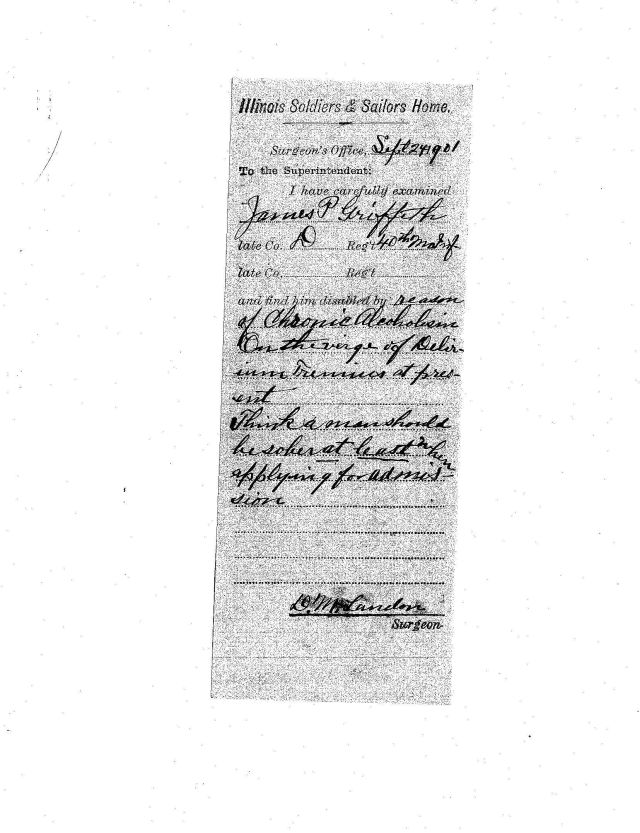 Illinois Soldiers & Sailors Home.
Surgeon's Office, Sept 24 1901
To the Superintendent:
I have carefully examined
James P Griffeth
late Co. D Reg't 40th
late Co. Reg't
and find him disabled by reason
of Chronic Alcoholism
On the verge of Delir-
ium Tremmes at pres-
ent
Think a man should
be sober at least when
applying for admis-
sion
Landon
Surgeon